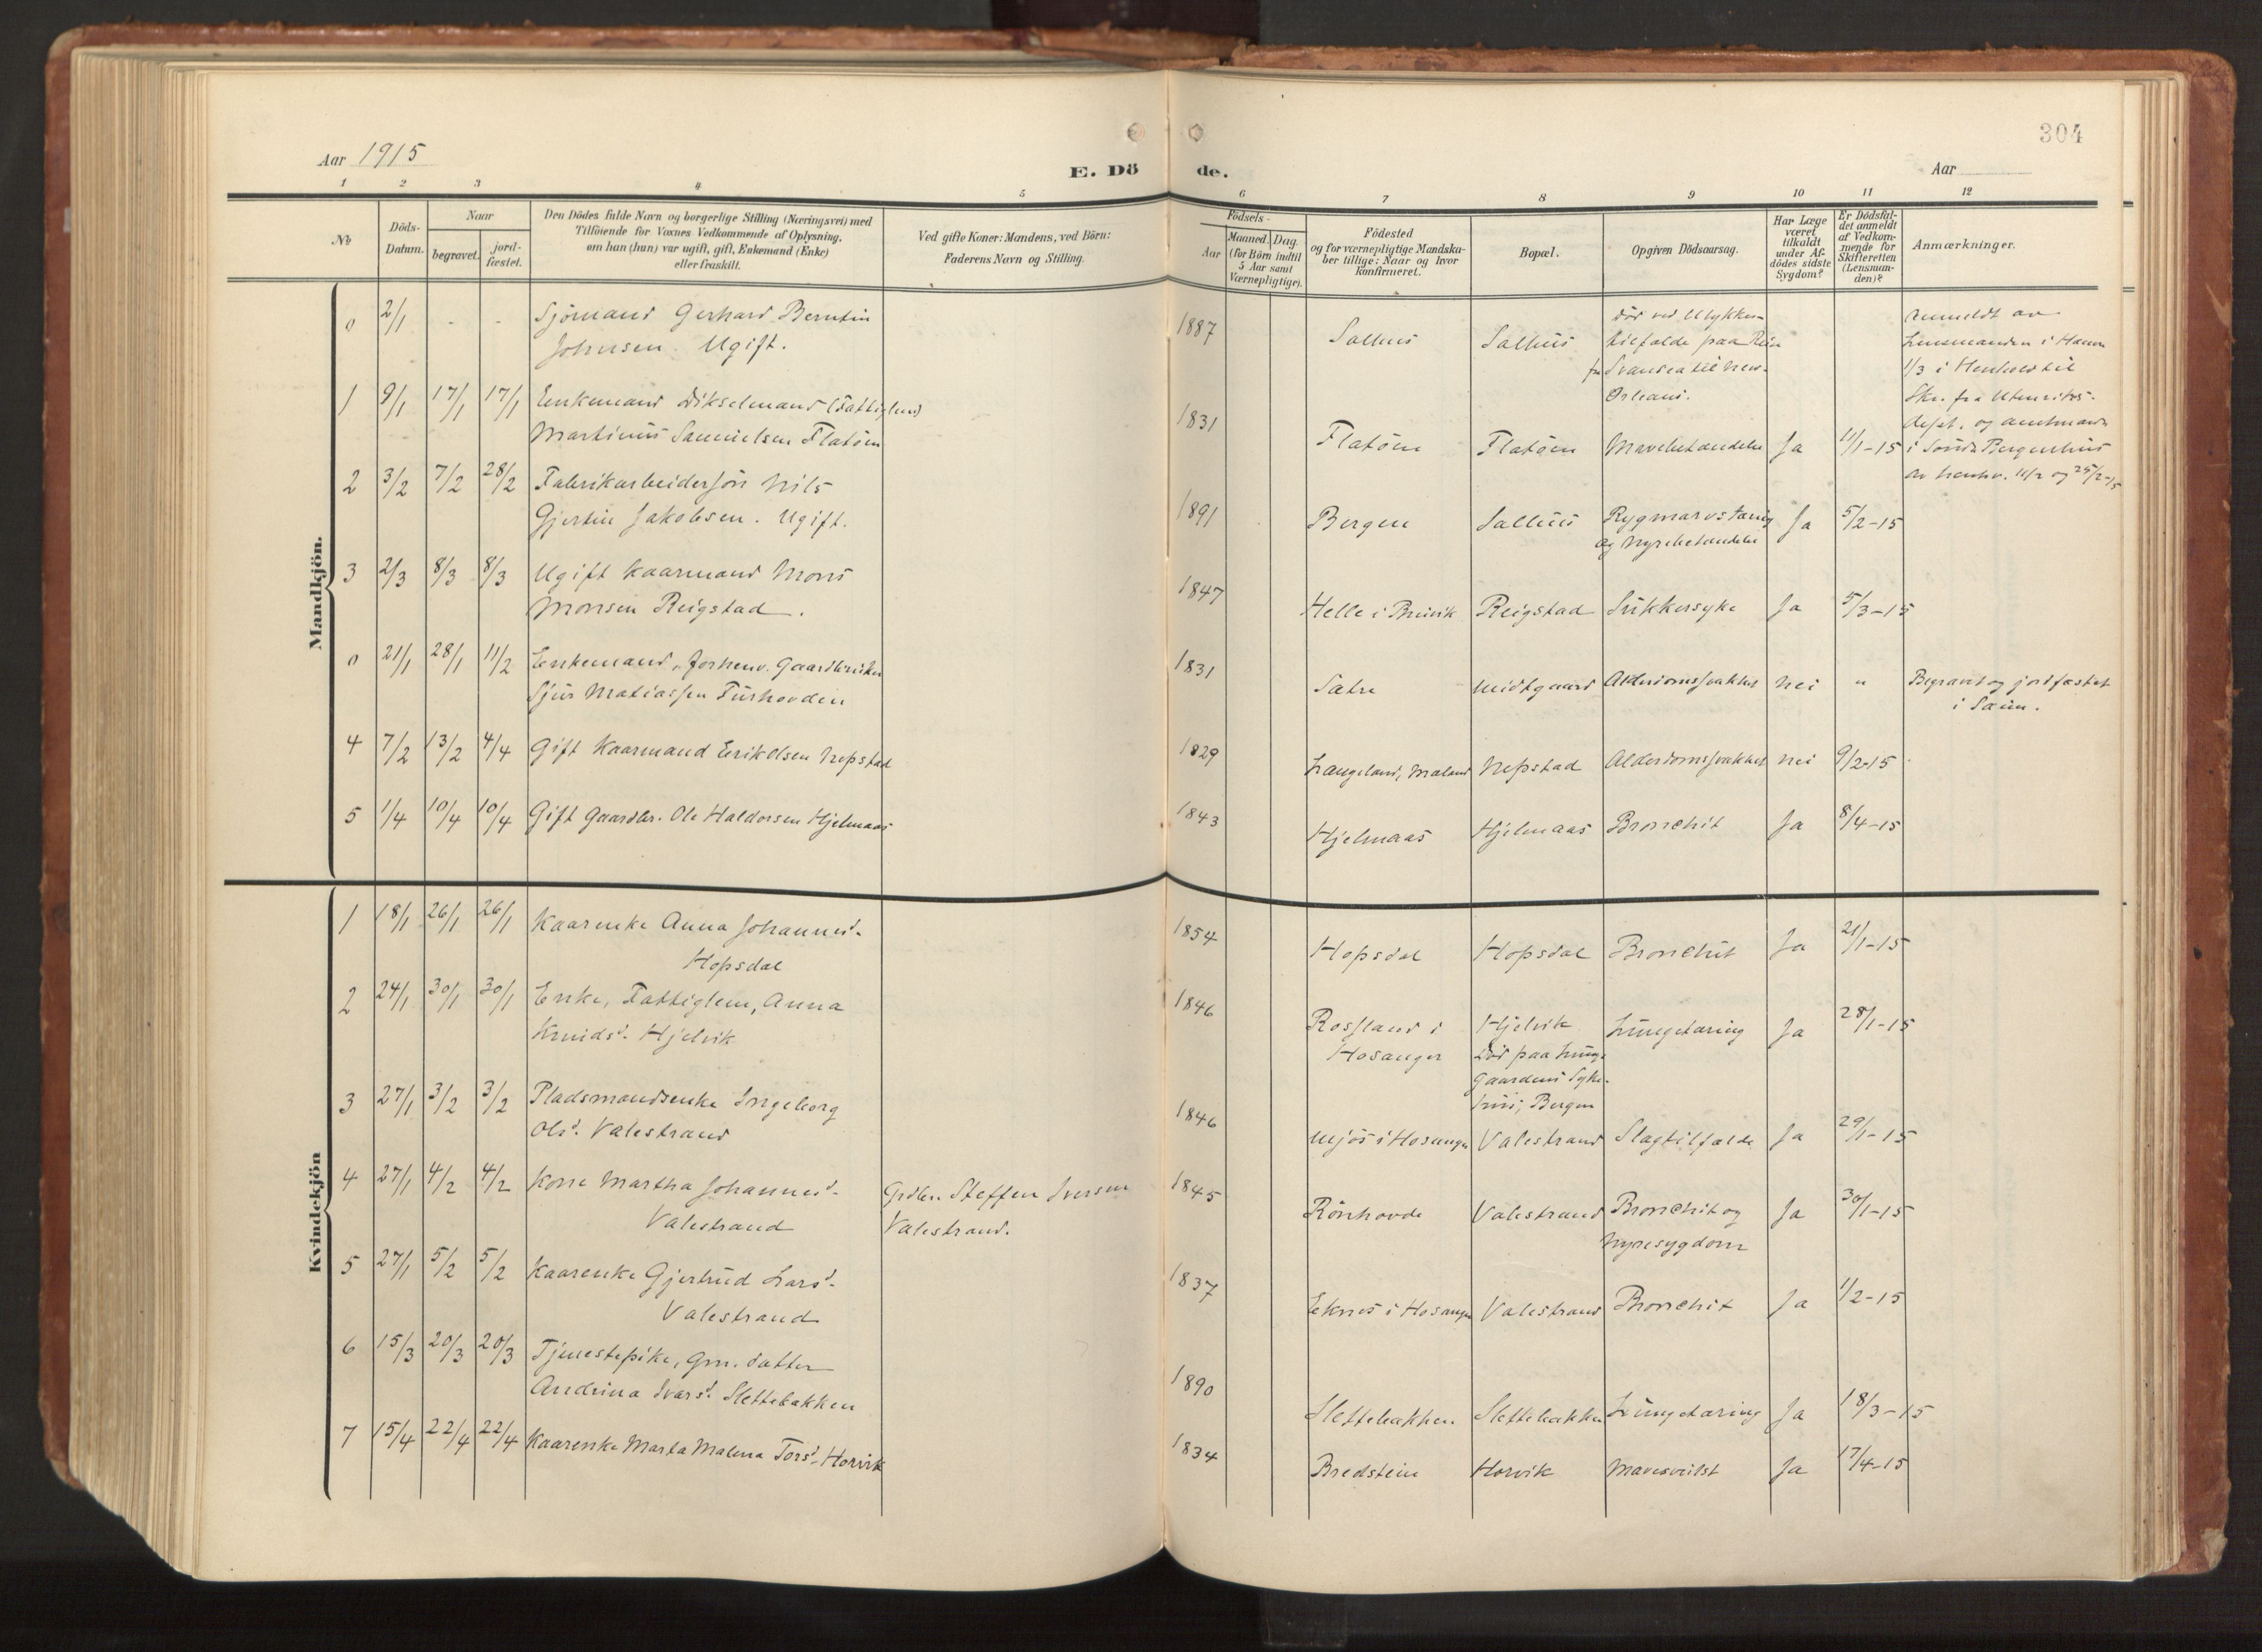 304
Aar 1915
E. Dö de.
Aar
1 2 3 4 5 6 7 8 9 10 11 12
№
Döds-
Datum.
Naar
begravet.
jord-
fæstet.
Den Dödes fulde Navn og borgerlige Stilling (Næringsvei) med
Tilföiende for Voxnes Vedkommende af Oplysning,
om han (hun) var ugift, gift, Enkemand (Enke)
eller fraskilt.
Ved gifte Koner: Mandens, ved Börn:
Faderens Navn og Stilling.
Födsels-
Aar
Maaned. Dag.
(for Börn indtil
5 Aar samt
Værnepligtige).
Födested
og for værnepligtige Mandska-
ber tillige: Naar og hvor
konfirmeret.
Bopæl.
Opgiven Dödsaarsag.
Har Læge
været
tilkaldt
under Af-
dödes sidste
Sygdom?
Er Dödsfal-
det anmeldt
af Vedkom-
mende for
Skifteretten
(Lensman-
den)?
Anmærkninger.
Mandkjön.
0 2/1 - - Sjömand Gerhard Berntin
Johnsen. Ugift.
1887 Salhus Salhus
död ved Ulykkes-
tilfælde paa Reise
fra Svansea til New-
Orleans.
Anmeldt av
Lensmanden i Hamre
1/3 i Henhold til
Skr. fra Utenriks-
dept. og amtmand
i Söndre Bergenhus
av henhv. 11/2 og 25/2-15
1 9/1 17/1 17/1 Enkemand Dikselmand (Fattiglem)
Martinus Samuelsen Flatöen
1831 Flatöen Flatöen Mavebetændelse Ja 11/1-15
2 3/2 7/2 28/2 Fabrikarbeidersön Nils
Gjertin Jakobsen. Ugift.
1891 Bergen Salhus Rygmarvstæring
og Nyrebetændelse Ja 5/2-15
3 2/3 8/3 8/3 Ugift Kaarmand Mons
Monsen Reigstad.
1847 Helle i Bruvik Reigstad Sukkersyke Ja 5/3-15
0 21/1 28/1 11/2 Enkemand, forhenv. Gaardbruker
Sjur Matiassen Turhovden
1831 Sætre Midtgaard Alderdomssvakhet Nei "
Begravet og jordfæstet
i Sæim.
4 7/2 13/2 4/4 Gift Kaarmand Erik Olsen Nepstad
1829 Langeland, Maland Nepstad Alderdomssvakhet Nei 9/2-15
5 1/4 10/4 10/4 Gift Gaardbr. Ole Haldorsen Hjelmaas
1843 Hjelmaas Hjelmaas Bronchit Ja 8/4-15
Kvindekjön
1 18/1 26/1 26/1 Kaarenke Anna Johannesd.
Hopsdal
1854 Hopsdal Hopsdal Bronchit Ja 21/1-15
2 24/1 30/1 30/1 Enke, Fattiglem, Anna
Knudsd. Hjelvik
1846 Rossland i
Hosanger
Hjelvik
Död paa Lunge-
gaardens Syke-
hus, Bergen
Lungetæring Ja 28/1-15
3 27/1 3/2 3/2 Pladsmandsenke Ingeborg
Olsd. Valestrand
1846 Mjös i Hosanger Valestrand Slagtilfælde Ja 29/1-15
4 27/1 4/2 4/2 Kone Martha Johannesd.
Valestrand
Grdbr. Steffen Iversen
Valestrand.
1845 Rönhovde Valestrand Bronchit og
Nyresygdom Ja 30/1-15
5 27/1 5/2 5/2 Kaarenke Gjertrud Larsd.
Valestrand
1837 Eknes i Hosanger Valestrand Bronchit Ja 1/2-15
6 15/3 20/3 20/3 Tjenestepike, Grm. datter
Andrina Ivarsd. Slettebakken
1890 Slettebakken Slettebakken Lungetæring Ja 18/3-15
7 15/4 22/4 22/4 Kaarenke Marta Malena Torsd. Horvik
1834 Bredstein Horvik Mavesvulst Ja 17/4-15